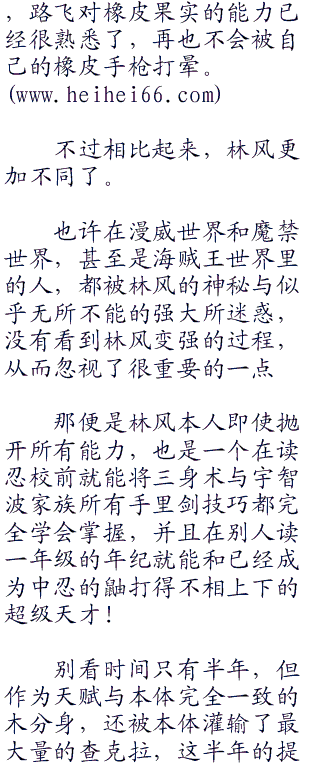 ，路飞对橡皮果实的能力已
经很熟悉了，再也不会被自
己的橡皮手枪打晕。
(www.heihei66.com)
不过相比起来，林风更
加不同了。
也许在漫威世界和魔禁
世界，甚至是海贼王世界里
的人，都被林风的神秘与似
乎无所不能的强大所迷惑，
没有看到林风变强的过程，
从而忽视了很重要的一点
那便是林风本人即使抛
开所有能力，也是一个在读
忍校前就能将三身术与宇智
波家族所有手里剑技巧都完
全学会掌握，并且在别人读
一年级的年纪就能和已经成
为中忍的鼬打得不相上下的
超级天才！
别看时间只有半年，但
作为天赋与本体完全一致的
木分身，还被本体灌输了最
大量的查克拉，这半年的提